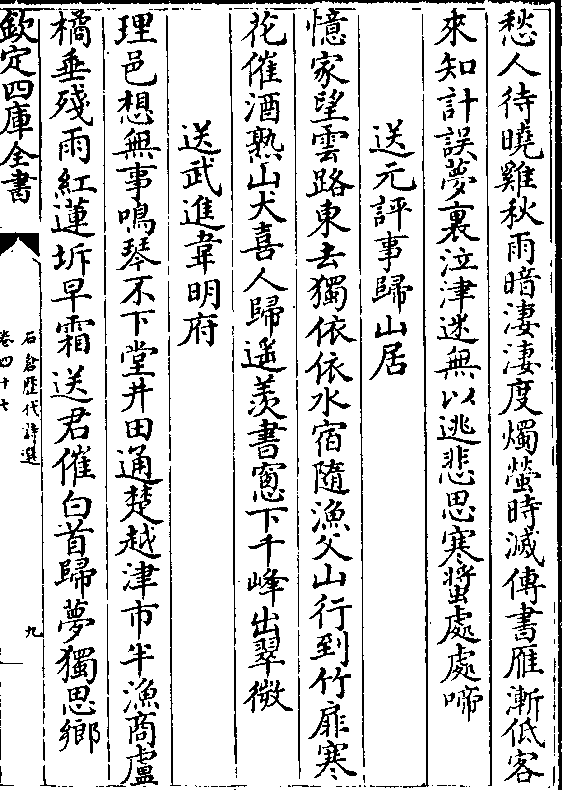 愁人待曉雞秋雨暗淒淒度燭螢時滅傳書雁漸低客
來知計誤夢裏泣津迷無以逃悲思寒螿處處啼
送元評事歸山居
憶家望雲路東去獨依依水宿隨漁父山行到竹扉寒
花催酒熟山犬喜人歸遥羨書窻下千峰出翠微
送武進韋明府
理邑想無事鳴琴不下堂井田通楚越津市半漁商盧
橘垂殘雨紅蓮坼早霜送君催白首歸夢獨思鄉
欽定四庫全書
石倉歴代詩選
卷四十七
九